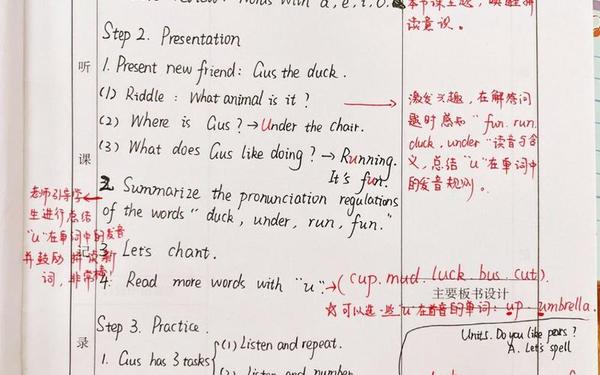 with a, e, i, o.
读意识。
Step 2. Presentation
听
1. Present new friend: Gus the duck.
(1) Riddle: What animal is it?
激发兴趣，在解答问
题时感知“fun. run.
duck. under”读音与含
义，总结“u”在单词中
的发音规则。
(2) Where is Gus? → Under the chair.
(3) What does Gus like doing? → Running.
It's fun.
课
2. Summarize the pronunciation regulations
of the words "duck, under, run, fun."
老师引导学
生进行总结
“u”在单词中的发音
并鼓励拼读新
词，非常棒!
3. Let's chant.
记
4. Read more words with "u". → (cup. mud. luck. bus. cut).
主要板书设计
☆可以选一些“u”在首音的单词: up. umbrella.
Step 3. Practice.
录
1. Gus has 3 tasks
(1) Listen and repeat.
(2) Listen and number
Unit5. Do you like pears?
A. Let's spell